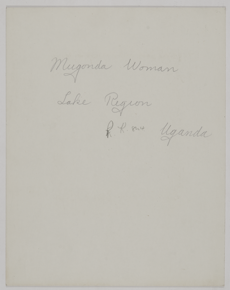 Mugonda Woman
Lake Region
Uganda